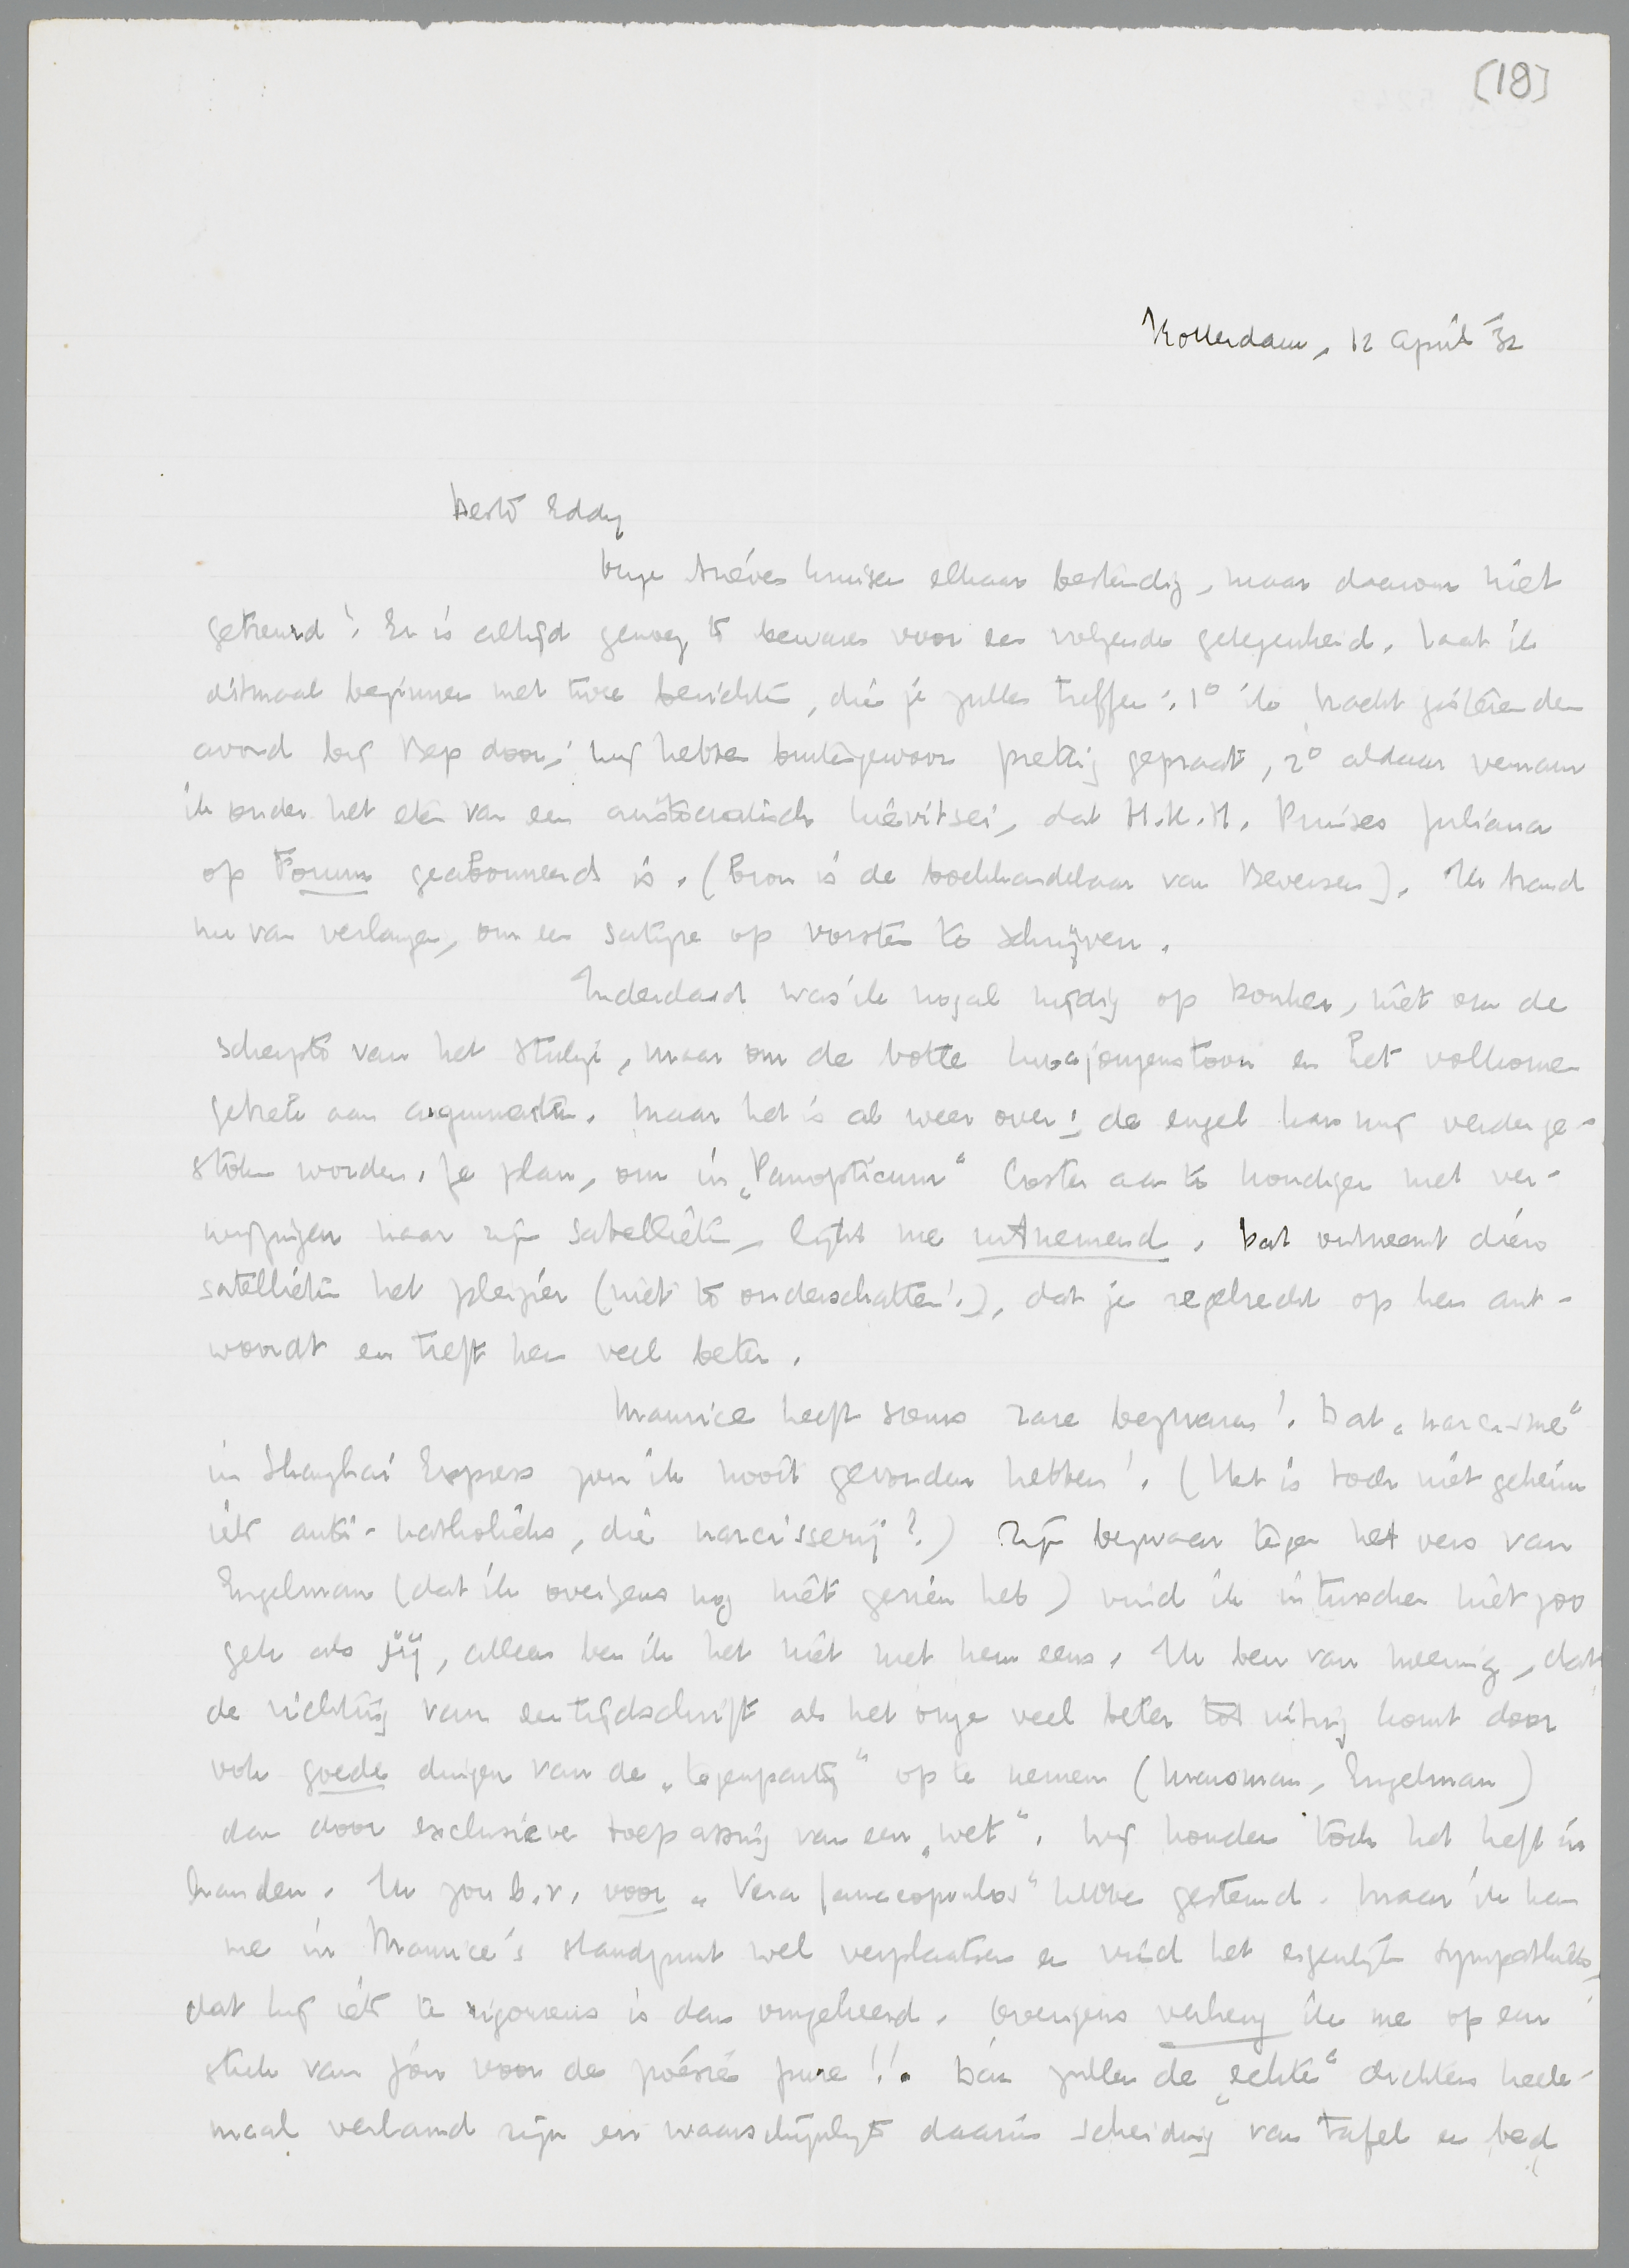 [18]
Rotterdam, 12 April '32
Beste Eddy
Onze brieven kruisen elkaar bestendig, maar daarom niet
getreurd! Er is altijd genoeg te bewaren voor een volgende gelegenheid. Laat ik
ditmaal beginnen met twee berichten, die je zullen treffen: 1° ik bracht gisteren den
avond bij Bep door; wij hebben buitengewoon prettig gepraat, 2° aldaar vernam
ik onder het eten van een aristocratisch kievitsei, dat H.K.H. Prinses Juliana
op Forum geabonneerd is. (Bron is de boekhandelaar van Beversen). Ik brand
nu van verlangen, om een satyre op vorsten te schrijven.
Inderdaad was ik nogal nijdig op Donker, niet om de
scherpte van het stukje, maar om de botte kwajongenstoon en het volkomen
gebrek aan argumenten. Maar het is al weer over; de engel kan mij verder ge-
stolen worden. Je plan, om in „Panopticum" Coster aan te kondigen met ver-
wijzingen naar zijn satellieten, lijkt me uitnemend. Dat ontneemt dien
satellieten het plezier (niet te onderschatten!), dat je regelrecht op hen ant-
woordt en treft hen veel beter.
Maurice heeft soms rare bezwaren! Dat „narcisme"
in Shanghai Express zou ik nooit gevonden hebben! (Het is toch niet geheim
iets anti-katholieks, die narcisserij?) Zijn bezwaar tegen het vers van
Engelman (dat ik overigens nog niet gezien heb) vind ik intusschen niet zoo
gek als jij, alleen ben ik het niet met hem eens. Ik ben van meening, dat
de richting van een tijdschrift als het onze veel beter tot uiting komt door
ook goede dingen van de „tegenpartij" op te nemen (Marsman, Engelman)
dan door exclusieve toepassing van een „wet". Wij houden toch het heft in
handen. Ik zou b.v. voor „Vera Janacopoulos" hebben gestemd. Maar ik kan
me in Maurice's standpunt wel verplaatsen en vind het eigenlijk sympathiek,
dat hij iets te rigoureus is dan omgekeerd. Overigens verheug ik me op een
stuk van jou voor de poésie pure!! Dan zullen de „echte" dichters heele-
maal verbaasd zijn en waarschijnlijk daarin scheiding van tafel en bed